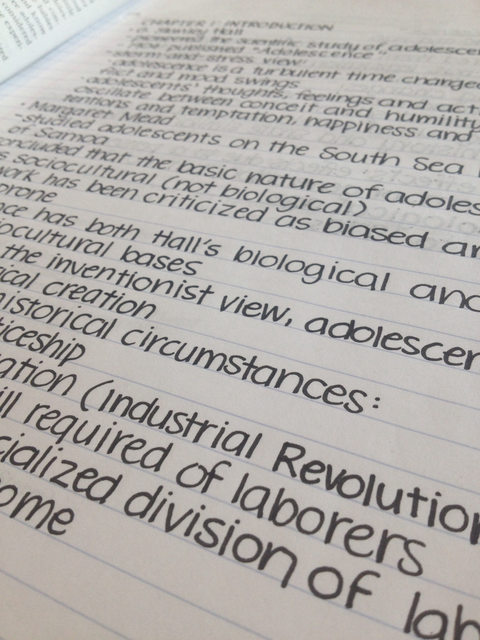 CHAPTER 1: INTRODUCTION
G. Stanley Hall
pioneered the scientific study of adolescen
1904: published "Adolescence"
-storm and stress view:
adolescence is a turbulent time changed
flict and mood swings
-adolescents' thoughts, feelings and act
oscillate between conceit and humility
tentions and temptation, happiness and
• Margaret Mead
-studied adolescents on the South Sea
of Samoa
concluded that the basic nature of adoles
s sociocultural (not biological)
work has been criticized as biased an
prone
nce has both Hall's biological and
iocultural bases
the inventionist view, adolescen
ical creation
historical circumstances:
ticeship
ation (Industrial Revolution
ill required of laborers
cialized division of lab
ome